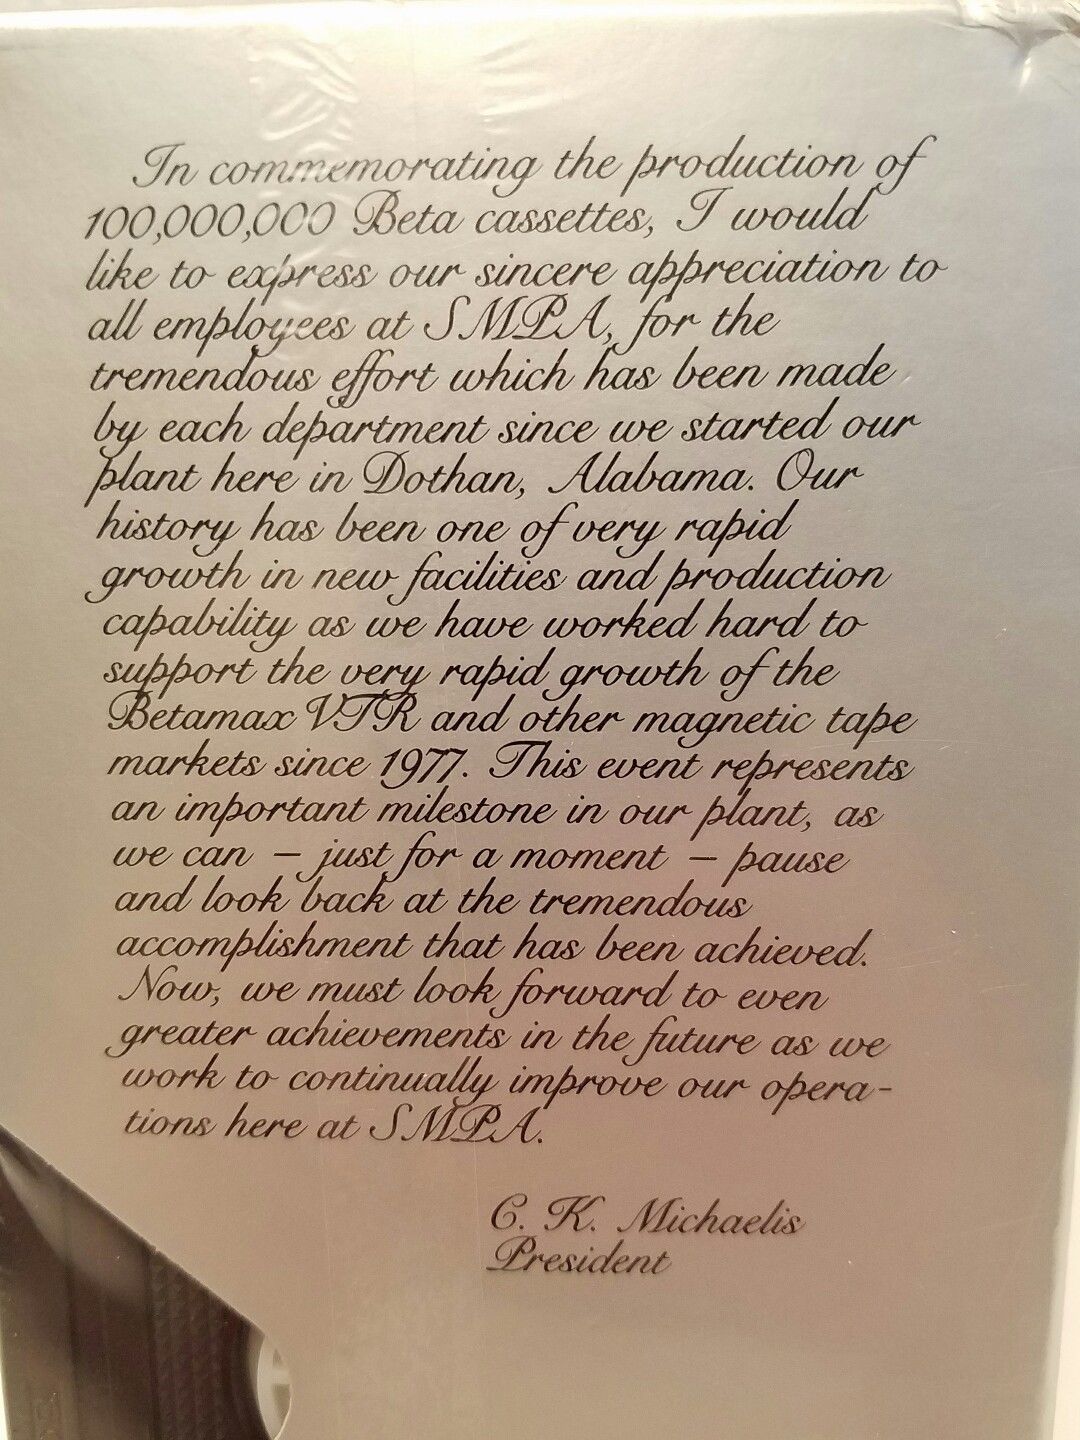 In commemorating the production of
100,000,000 Beta cassettes, I would
like to express our sincere appreciation to
all employees at SMPA, for the
tremendous effort which has been made
by each department since we started our
plant here in Dothan, Alabama. Our
history has been one of very rapid
growth in new facilities and production
capability as we have worked hard to
support the very rapid growth of the
Betamax VTR and other magnetic tape
markets since 1977. This event represents
an important milestone in our plant, as
we can – just for a moment – pause
and look back at the tremendous
accomplishment that has been achieved.
Now, we must look forward to even
greater achievements in the future as we
work to continually improve our opera-
tions here at SMPA.
C. K. Michaelis
President